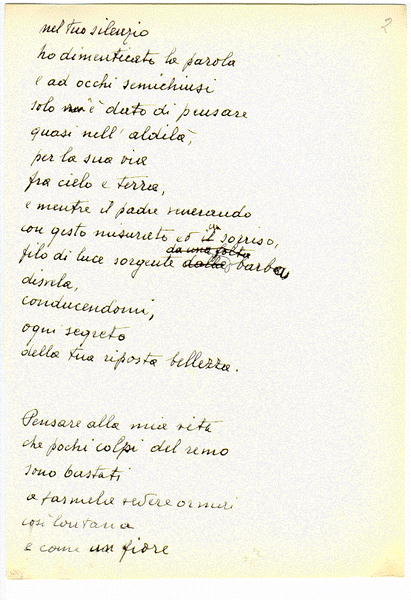 2
nel tuo silenzio
ho dimenticato la parola
e ad occhi semichiusi
solo m'è dato di pensare
quasi nell'aldilà,
per la sua via
fra cielo e terra,
e mentre il padre venerando
con gesto misurato ed il sorriso,
da una folta
filo di luce sorgente dalla barba
disvela,
conducendomi,
ogni segreto
della tua riposta bellezza.
Pensare alla mia vita
che pochi colpi del remo
sono bastati
a farmela vedere ormai
così lontana
e come un fiore